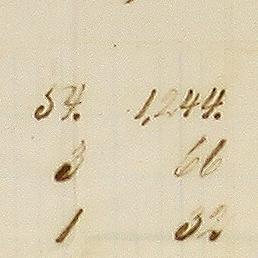 54. 1,244.
3 66
1 32